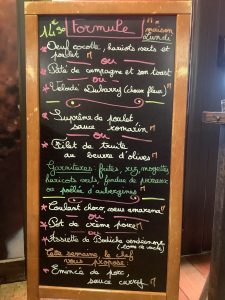 14€50 Formule "maison"
Lundi
Oeuf cocotte, haricots verts et
poulet
ou
Pâté de campagne et son toast
ou
Velouté Dubarry (choux fleur)
Suprême de poulet
sauce romarin
ou
Filet de truite
au beurre d'olives
Garnitures: frites, riz, mogettes
haricots verts, fondue de poireaux
ou poêlée d'aubergines
Coulant choco, sauce amarena
ou
Pot de crème poire
ou
Assiette de
Cette semaine le chef
vous propose
Emincé de porc,
sauce curry